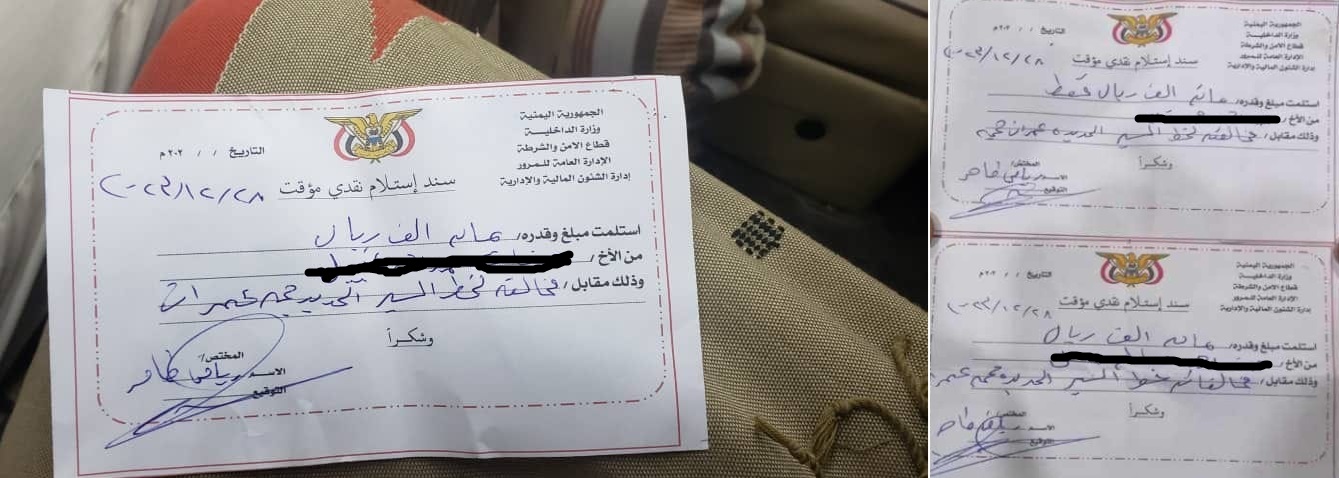 الجمهورية اليمنية
وزارة الداخلية
قطاع الامن والشرطة
الإدارة العامة للمرور
إدارة الشئون المالية والإدارية
التاريخ / / ٢٠٢م
سند إستلام نقدي مؤقت
٢٠٢٣/١٢/٢٨
استلمت مبلغ وقدره/ مائه الف ريال
من الأخ/
وذلك مقابل/ مخالفة لخط السير الحديده حجه عمران
وشكراً
المختص/
الاسم/ رياض طاهر
التوقيع
الجمهورية اليمنية
وزارة الداخلية
قطاع الامن والشرطة
الإدارة العامة للمرور
إدارة الشئون المالية والإدارية
التاريخ / / ٢٠٢م
سند إستلام نقدي مؤقت
٢٠٢٣/١٢/٢٨
استلمت مبلغ وقدره/ مائه الف ريال فقط
من الأخ/
وذلك مقابل/ مخالفة لخط السير الحديده عمران حجه
وشكراً
المختص/
الاسم/ رياض طاهر
التوقيع
الجمهورية اليمنية
وزارة الداخلية
قطاع الامن والشرطة
الإدارة العامة للمرور
إدارة الشئون المالية والإدارية
التاريخ / / ٢٠٢م
سند إستلام نقدي مؤقت
٢٠٢٣/١٢/٢٨
استلمت مبلغ وقدره/ مائه الف ريال
من الأخ/
وذلك مقابل/ خط السير الحديده حجه
وشكراً
المختص/
الاسم/ طاهر
التوقيع